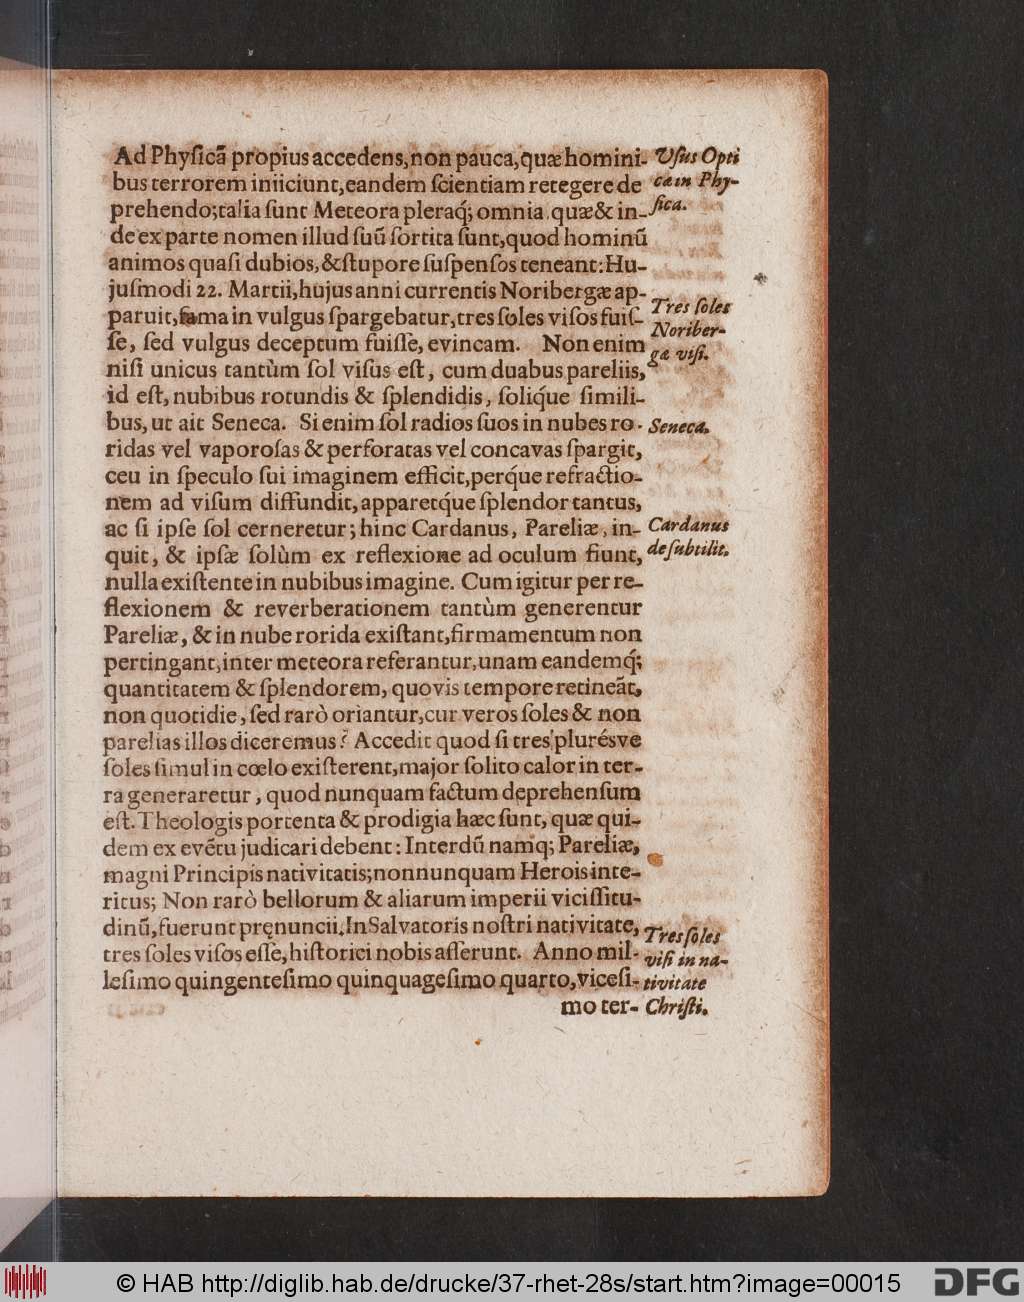 Ad Phyſicã propius accedens, non pauca, quæ homini-
bus terrorem iniiciunt, eandem ſcientiam retegere de
prehendo; talia ſunt Meteora pleraq́; omnia quæ & in-
de ex parte nomen illud ſuũ ſortita ſunt, quod hominũ
animos quaſi dubios, & ſtupore ſuſpenſos teneant: Hu-
juſmodi 22. Martii, hujus anni currentis Noribergæ ap-
paruit, fama in vulgus ſpargebatur, tres ſoles viſos fuiſ-
ſe, ſed vulgus deceptum fuiſſe, evincam. Non enim
niſi unicus tantùm ſol viſus eſt, cum duabus pareliis,
id eſt, nubibus rotundis & ſplendidis, ſoliq́ue ſimili-
bus, ut ait Seneca. Si enim ſol radios ſuos in nubes ro-
ridas vel vaporoſas & perforatas vel concavas ſpargit,
ceu in ſpeculo ſui imaginem efficit, perq́ue refractio-
nem ad viſum diffundit, apparetq́ue ſplendor tantus,
ac ſi ipſe ſol cerneretur; hinc Cardanus, Pareliæ, in-
quit, & ipſæ ſolùm ex reflexione ad oculum fiunt,
nulla exiſtente in nubibus imagine. Cum igitur per re-
flexionem & reverberationem tantùm generentur
Pareliæ, & in nube rorida exiſtant, firmamentum non
pertingant, inter meteora referantur, unam eandemq́;
quantitatem & ſplendorem, quovis tempore retineãt,
non quotidie, ſed rarò oriantur, cur veros ſoles & non
parelias illos diceremus? Accedit quod ſi tres plurésve
ſoles ſimul in cœlo exiſterent, major ſolito calor in ter-
ra generaretur, quod nunquam factum deprehenſum
eſt. Theologis portenta & prodigia hæc ſunt, quæ qui-
dem ex evẽtu judicari debent: Interdũ namq; Pareliæ,
magni Principis nativitatis; nonnunquam Herois inte-
ritus; Non rarò bellorum & aliarum imperii viciſſitu-
dinũ, fuerunt pręnuncii. In Salvatoris noſtri nativitate,
tres ſoles viſos eſſe, hiſtorici nobis aſſerunt. Anno mil-
leſimo quingenteſimo quinquageſimo quarto, viceſi-
mo ter-
Uſus Opti
ca in Phy-
ſica.
Tres ſoles
Noriber-
gæ viſi.
Seneca.
Cardanus
de ſubtilit.
Tres ſoles
viſi in na-
tivitate
Chriſti.
© HAB http://diglib.hab.de/drucke/37-rhet-28s/start.htm?image=00015
DFG